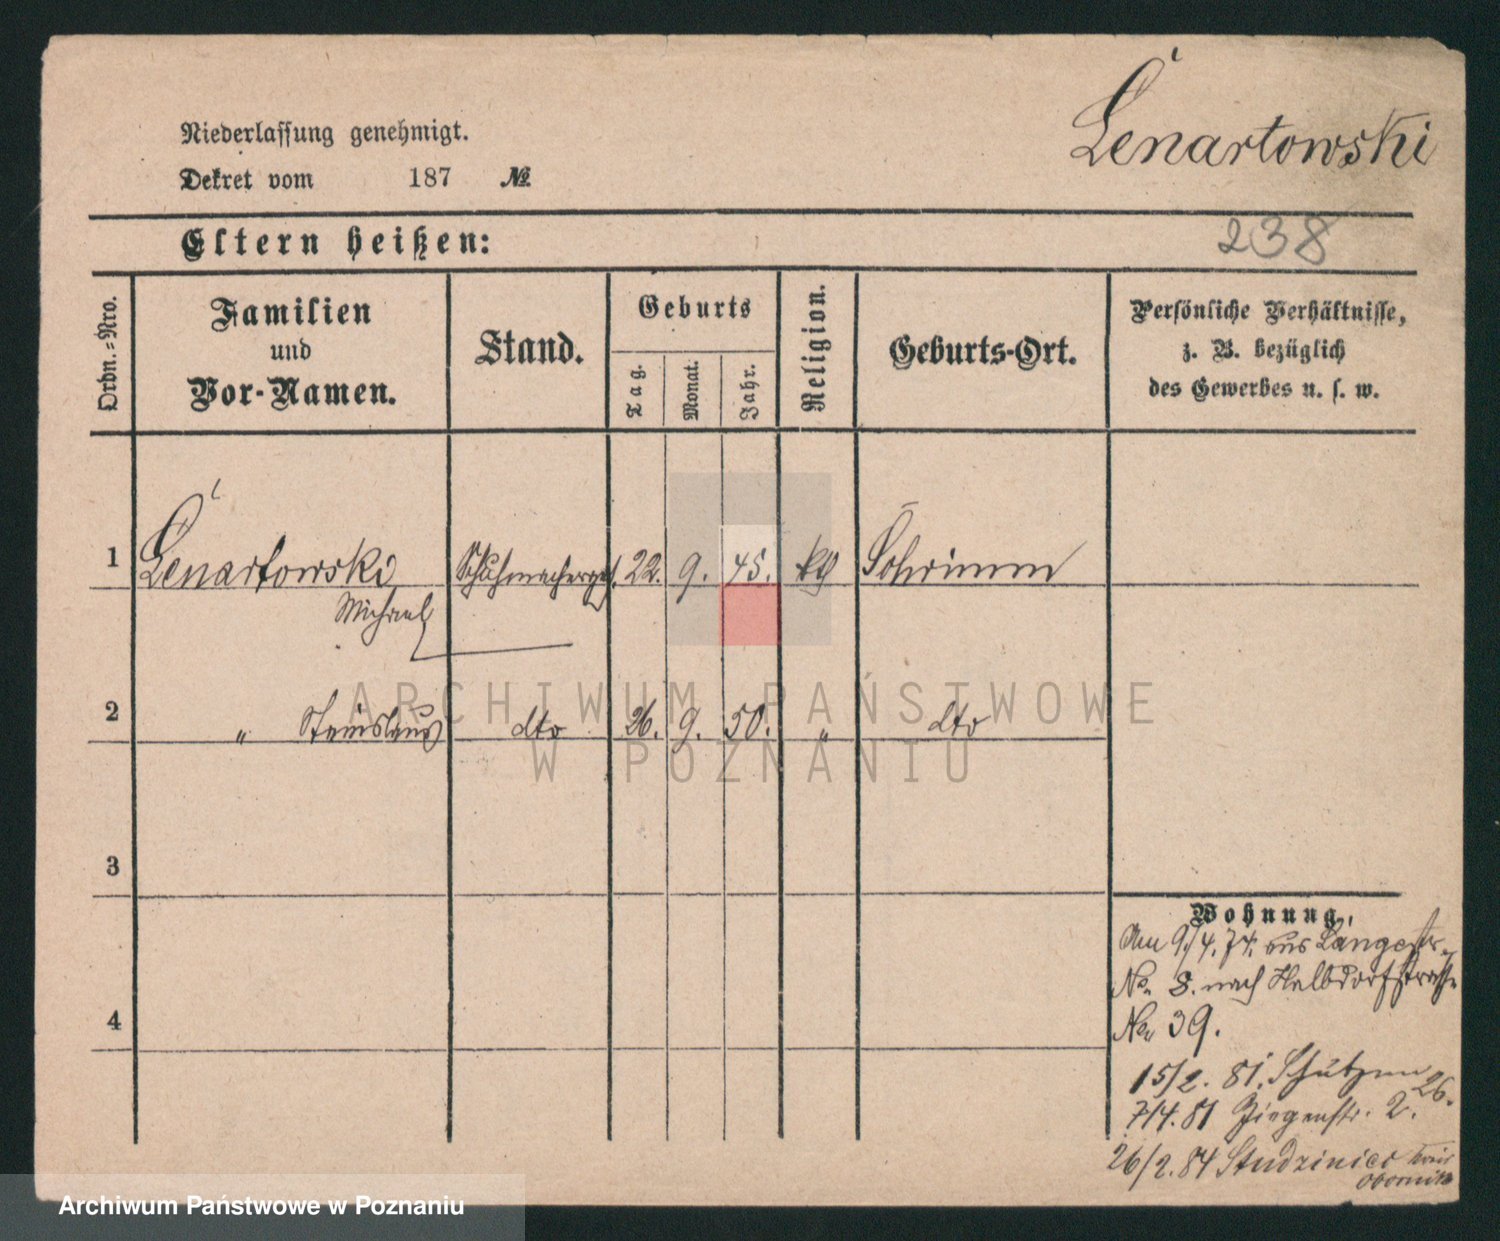 Lenartowski
Niederlassung genehmigt.
Dekret vom 187 №
238
Eltern heißen:
Ordn.-Nro.
Familien
und
Vor-Namen.
Stand.
Geburts
Tag.
Monat.
Jahr.
Religion.
Geburts-Ort.
Persönliche Verhältnisse,
z. B. bezüglich
des Gewerbes u. s. w.
1 Lenartowski Schuhmacherges. 22. 9. 45. Schrimm
Michael
2 " Stanislaus dto 26. 9. 50. " dto
3
4
Wohnung,
Am 9/4. 74. aus Langestr.
No. 8. nach Halbdorfstrasse
No 39.
15/2. 81. Schützen 26.
7/4. 81 Ziegenstr. 2.
26/2. 84 Studzinice Kreis
Obornik
ARCHIWUM PAŃSTWOWE
W POZNANIU
Archiwum Państwowe w Poznaniu